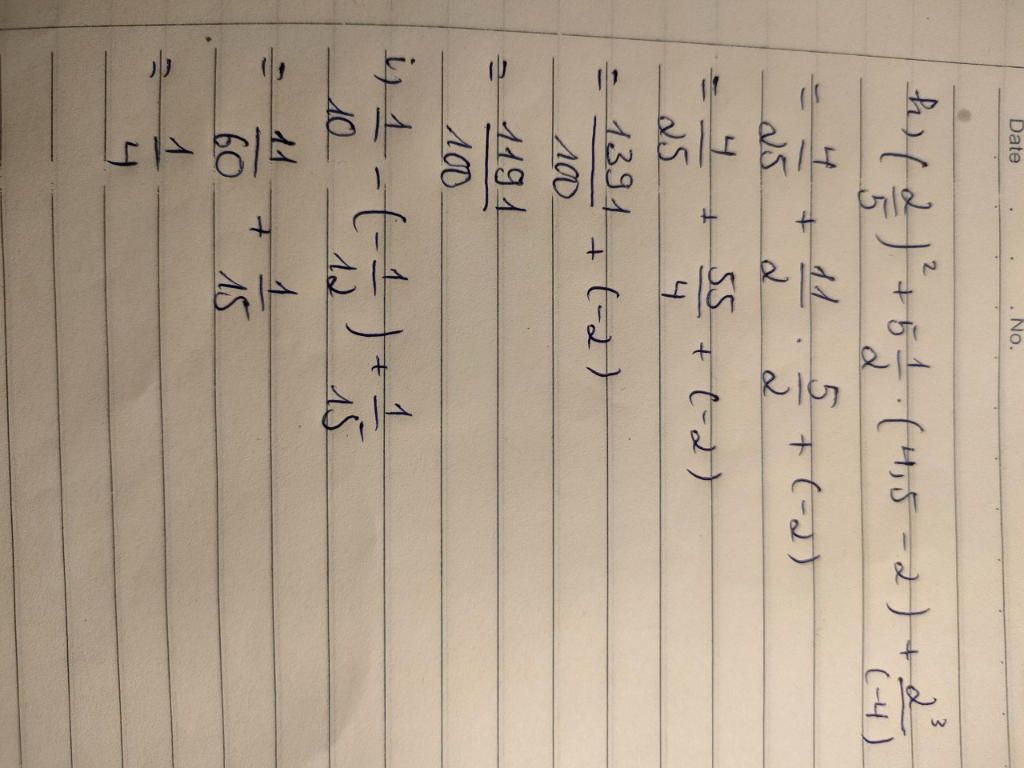 Date . . . No.
h, (2/5)² + 5 1/2 . (4,5 - 2) + 2³/(-4)
= 4/25 + 11/2 . 5/2 + (-2)
= 4/25 + 55/4 + (-2)
= 1391/100 + (-2)
= 1191/100
i, 1/10 - (-1/12) + 1/15
= 11/60 + 1/15
= 1/4